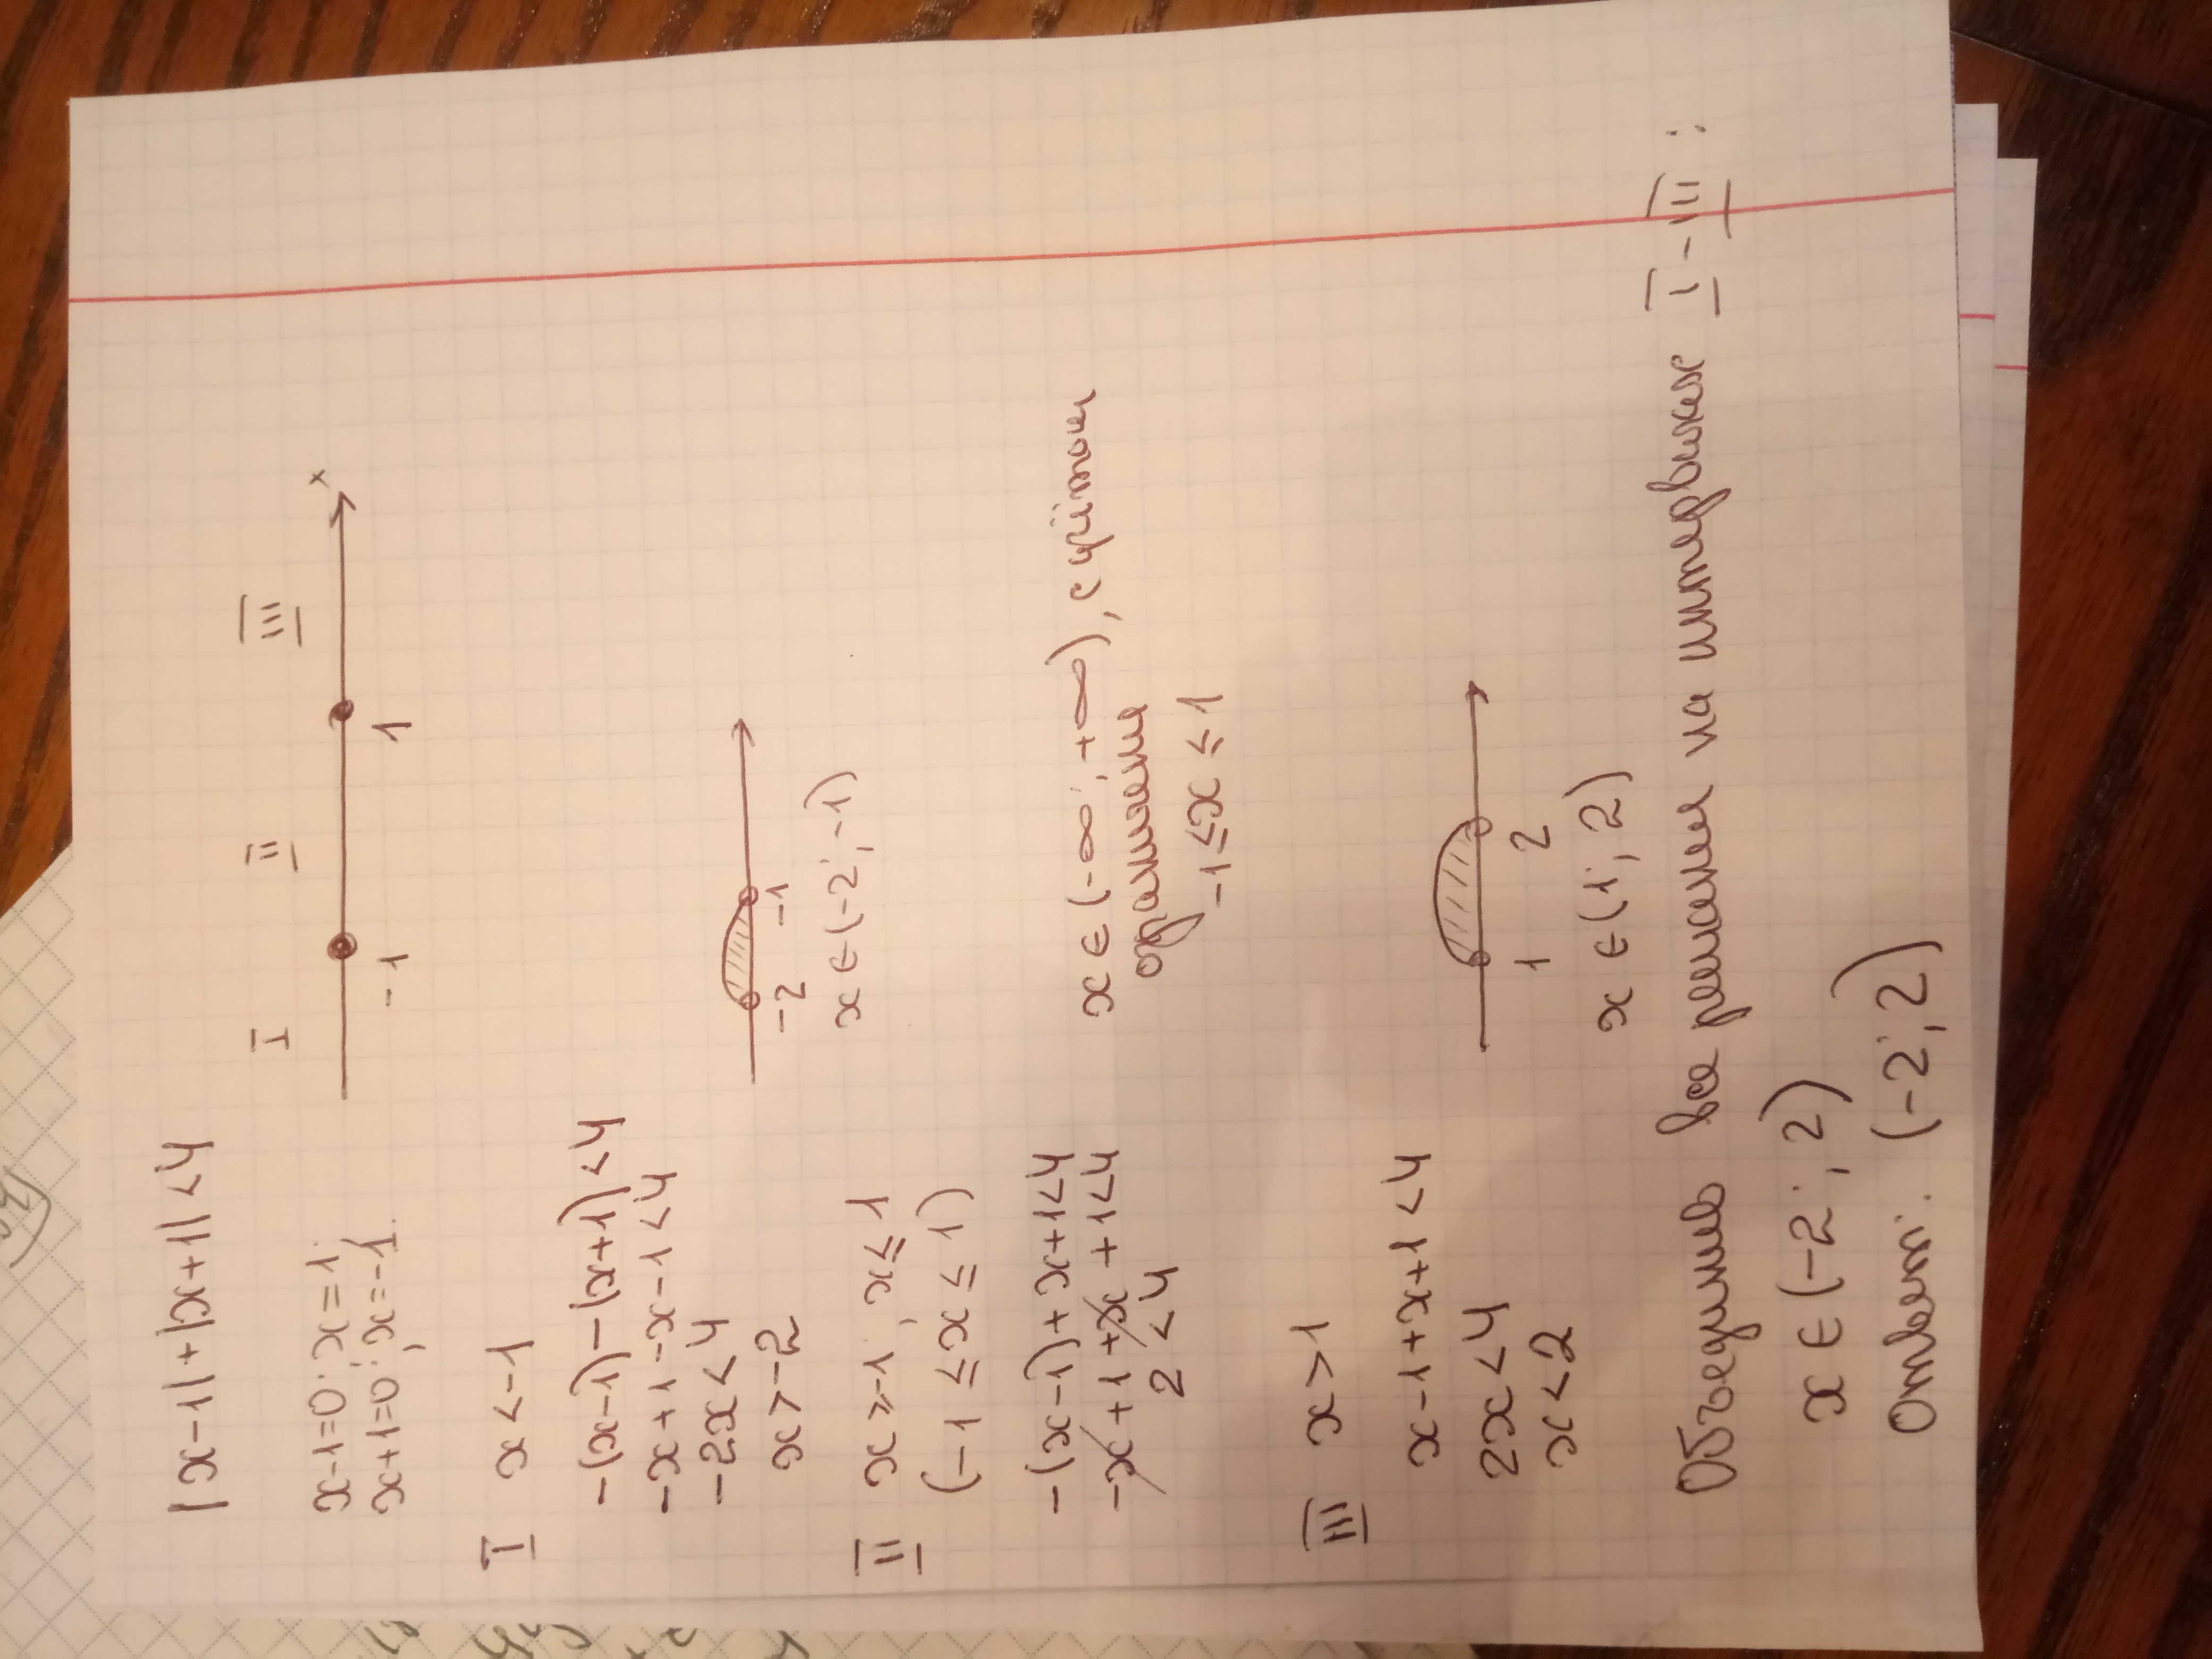 |x-1|+|x+1|<4
x-1=0; x=1;
x+1=0; x=-1.
I II III
-1 1 x
I x<-1
-(x-1)-(x+1)<4
-x+1-x-1<4
-2x<4
x>-2
-2 -1
x∈(-2;-1)
II x≥-1; x≤1
(-1≤x≤1)
-(x-1)+x+1<4
-x+1+x+1<4
2<4
x∈(-∞;+∞), с учётом
ограничения
-1≤x≤1
III x>1
x-1+x+1<4
2x<4
x<2
1 2
x∈(1;2)
Объединив все решения на интервалах I-III:
x∈(-2;2)
Ответ: (-2;2)